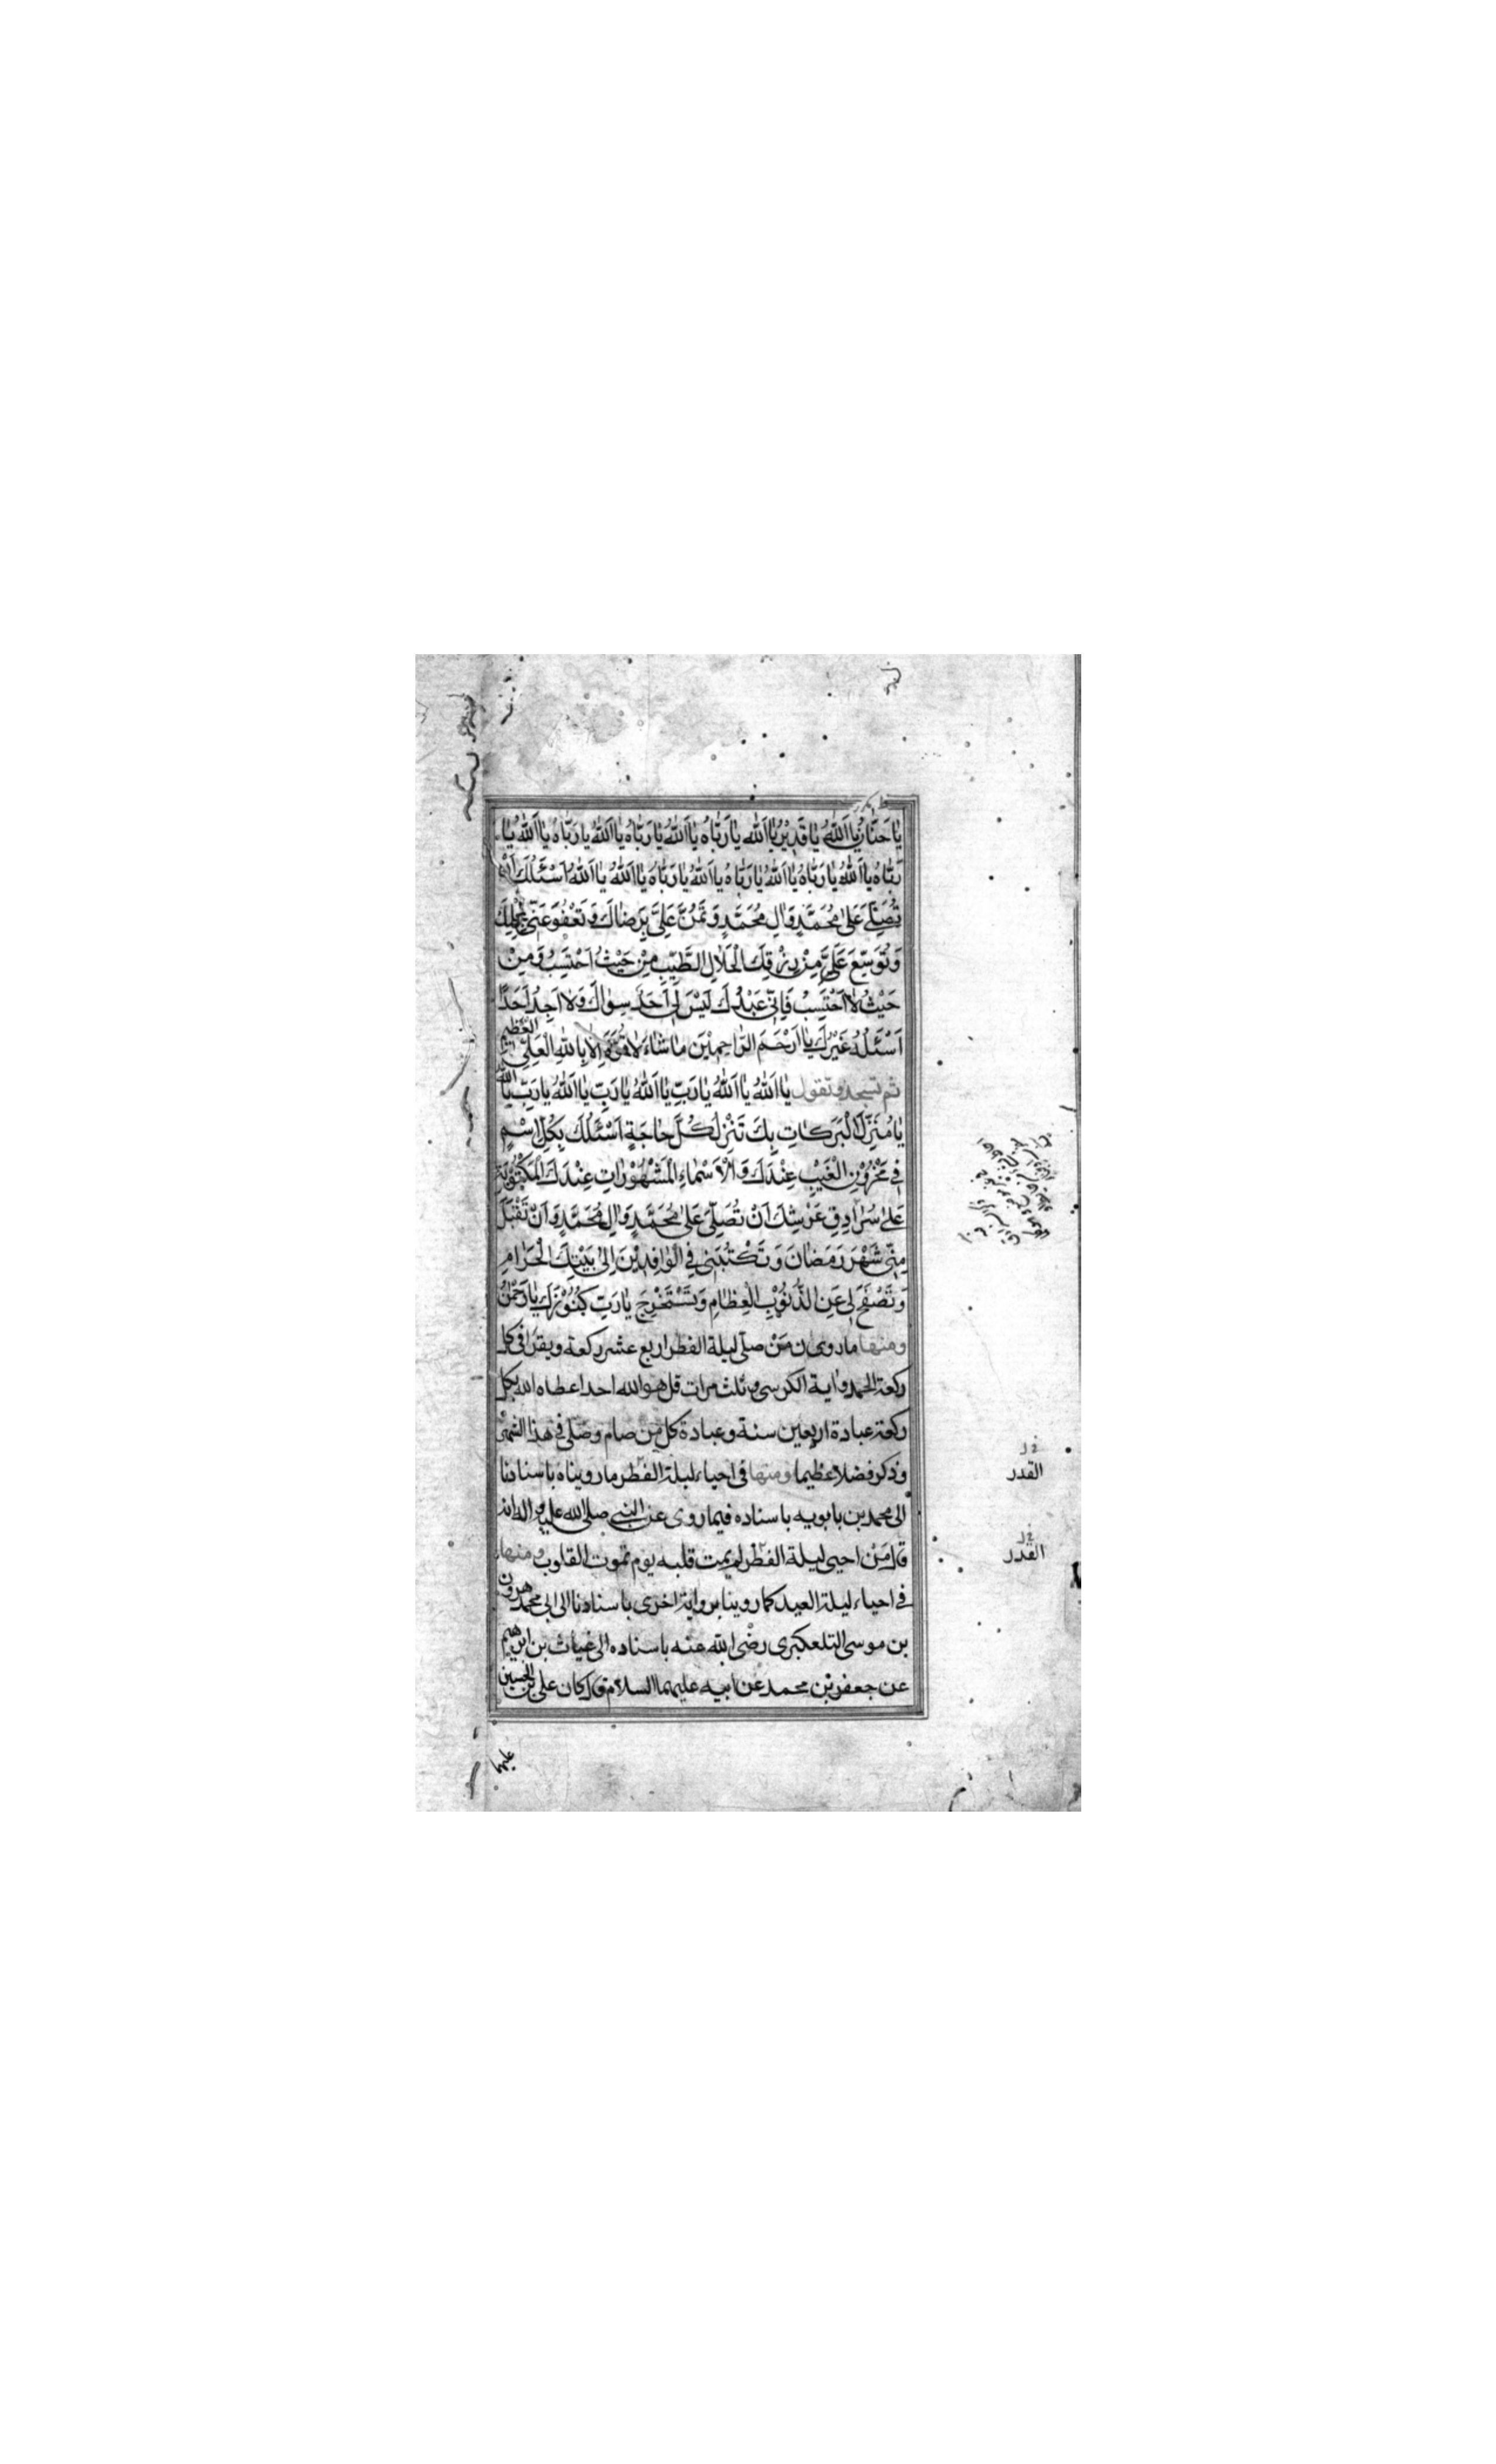 يٰا حَنّٰانُ يٰا اَللّٰهُ يٰا قَدِيْرُ يٰا اَللّٰهُ يٰا رَبّٰاهُ يٰا اَللّٰهُ يٰا رَبّٰاهُ يٰا اَللّٰهُ يٰا رَبّٰاهُ يٰا اَللّٰهُ يٰا
رَبّٰاهُ يٰا اَللّٰهُ يٰا رَبّٰاهُ يٰا اَللّٰهُ يٰا رَبّٰاهُ يٰا اَللّٰهُ يٰا رَبّٰاهُ يٰا اَللّٰهُ يٰا اَللّٰهُ اَسْئَلُكَ اَنْ
تُصَلِّيَ عَلىٰ مُحَمَّدٍ وَاٰلِ مُحَمَّدٍ وَتَمُنَّ عَلَيَّ بِرِضٰاكَ وَتَعْفُوَ عَنّي بِحِلْمِكَ
وَتُوَسِّعَ عَلَيَّ مِنْ رِزْقِكَ الْحَلاٰلِ الطَّيِّبِ مِنْ حَيْثُ اَحْتَسِبُ وَمِنْ
حَيْثُ لاٰ اَحْتَسِبُ فَاِنّي عَبْدُكَ لَيْسَ لي اَحَدٌ سِوٰاكَ وَلاٰ اَجِدُ اَحَدًا
اَسْئَلُهُ غَيْرَكَ يٰا اَرْحَمَ الرّٰاحِمِيْنَ مٰا شٰاءَ لاٰ قُوَّةَ اِلاّٰ بِاللّٰهِ الْعَلِيِّ الْعَظِيمِ
ثم تسجد وتقول يٰا اَللّٰهُ يٰا اَللّٰهُ يٰا رَبِّ يٰا اَللّٰهُ يٰا رَبِّ يٰا اَللّٰهُ يٰا رَبِّ يٰا اَللّٰهُ
يٰا مُنَزِّلَ الْبَرَكٰاتِ بِكَ تَنْزِلُ كُلُّ حٰاجَةٍ اَسْئَلُكَ بِكُلِّ اسْمٍ
في مَخْزُوْنِ الْغَيْبِ عِنْدَكَ وَالْاَسْمٰاءِ الْمَشْهُوْرٰاتِ عِنْدَكَ الْمَكْتُوْبَةِ
عَلىٰ سُرٰادِقِ عَرْشِكَ اَنْ تُصَلِّيَ عَلىٰ مُحَمَّدٍ وَاٰلِ مُحَمَّدٍ وَاَنْ تَقْبَلَ
مِنّي شَهْرَ رَمَضٰانَ وَتَكْتُبَني فِي الْوٰافِدِيْنَ اِلىٰ بَيْتِكَ الْحَرٰامِ
وَتَصْفَحَ لي عَنِ الذُّنُوْبِ الْعِظٰامِ وَتَسْتَخْرِجَ يٰا رَبِّ كُنُوْزَكَ يٰا رَحْمٰنُ
ومنها ما روى ان مَنْ صلّى ليلة الفطر اربع عشر ركعة ويقرا في كل
ركعة الحمد واية الكرسي وثلث مرات قل هو الله احد اعطاه الله بكل
ركعة عبادة اربعين سنة وعبادة كل مَن صام وصلّى في هذا الشهر
وذكر فضلا عظيما ومنها في احياء ليلة الفطر ما رويناه باسنادنا
الى محمد بن بابويه باسناده فيما روى عن النبي صلى الله عليه واله انه
قال مَنْ احيى ليلة الفطر لم يمت قلبه يوم تموت القلوب ومنها
في احياء ليلة العيد كما روينا برواية اخرى باسنادنا الى ابي محمد هرون
بن موسى التلعكبرى رضى الله عنه باسناده الى غياث بن ابرهيم
عن جعفر بن محمد عن ابيه عليهما السلام قال كان علي بن الحسين
عليهما
القدر
القدر